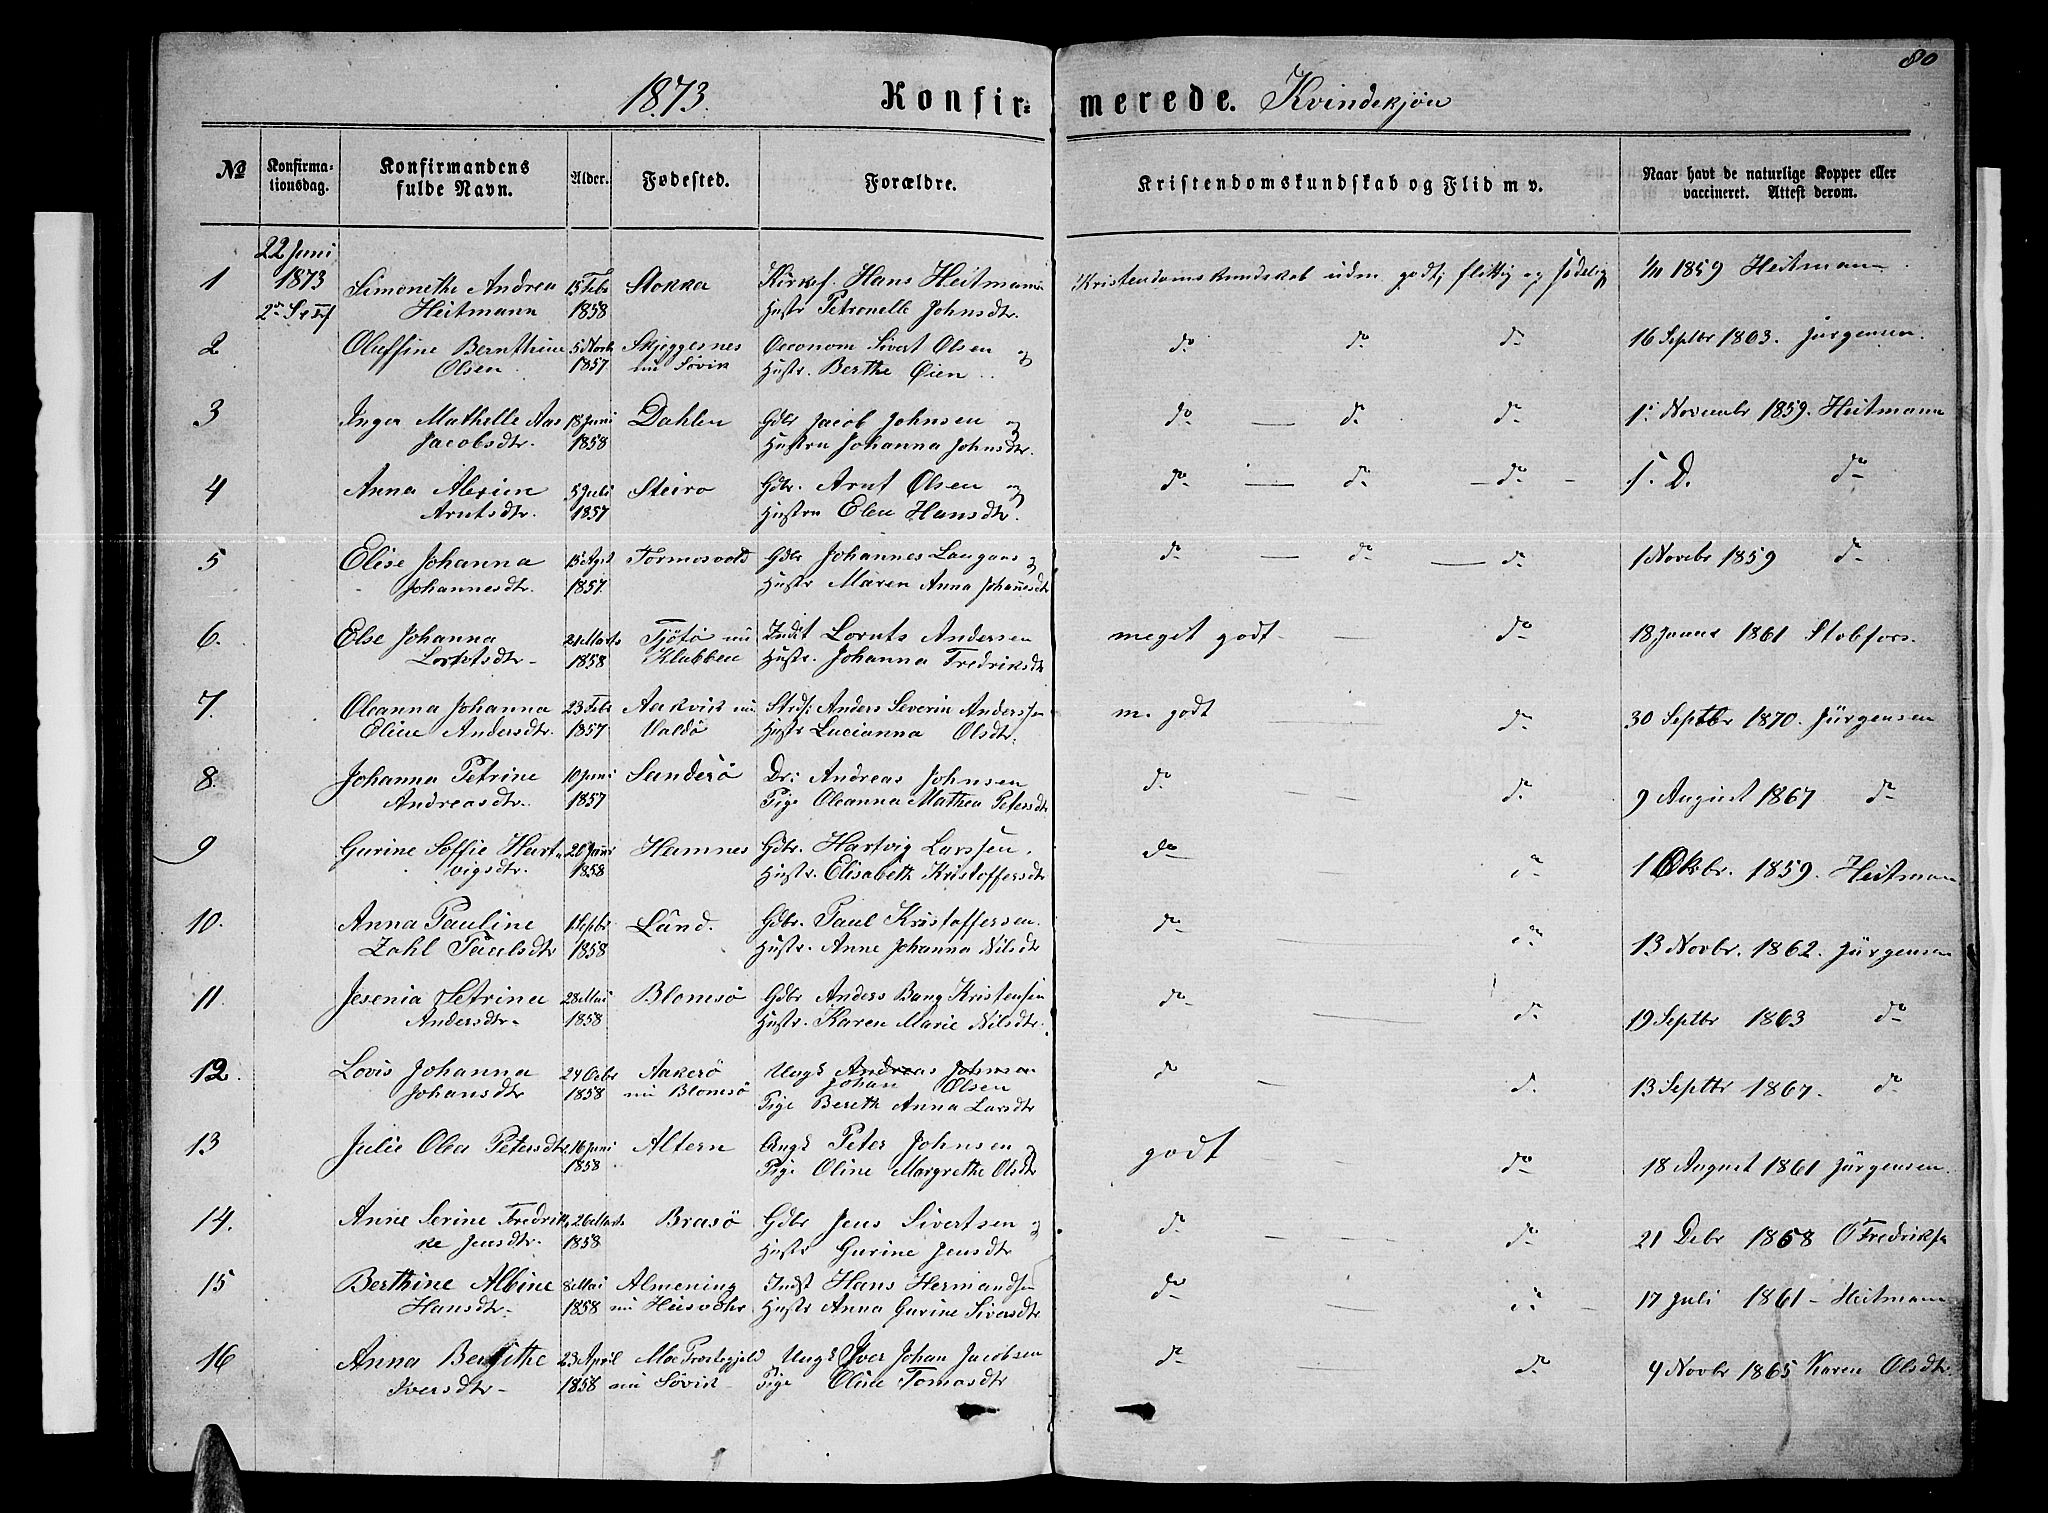 80
1873. Konfirmerede. Kvindekjøn
No Konfirmationsdag. Konfirmandens fulde Navn. Alder. Fødested. Forældre. Kristendomskundskab og Flid m v. Naar havt de naturlige Kopper eller vaccineret. Attest derom.
22 Juni
1 1873 Simonethe Andrea 15 Feb Stokka Kirkef. Hans Heitmann Kristendomskundskab uden godt, flittig og sædelig 1/11 1859 Heitmann
Heitmann 1858 Hustr Petronelle Johnsdtr.
2 Oluffine Bernthine 5 Novb Skjeggesnes Oeconom Sivert Olsen og do do do 16 Septbr 1863. Jürgensen.
Olsen 1857 nu Søvik Hustr. Berthe Øien
3 Inger Mathelle Aas 18 Juni Dahlen Gdbr Jacob Johnsen og do do do 1. Novembr 1859. Heitmann
Jacobsdtr. 1858 Hustru Johanna Johnsdtr.
4 Anna Alexine 5 Juli Steiro Gdbr. Arnt Olsen og do do do S. D. do
Arntsdtr. 1857 Hustru Elen Hansdtr.
5 Elise Johanna 15 Agst Tormosvold Gdbr Johannes Laugans og do do do 1 Novebr 1859 do
Johannesdtr. 1857. Hustr Maren Anna Johannesdtr
6. Else Johanna 21 Marts Tjøtø nu Indst Lornts Andersen meget godt do 18 Januar 1861 Stobfors.
Lorntsdtr 1858 Klubben Hustr. Johanna Fredriksdtr
7. Oleanna Johanna 23 Feb Aakvik nu Strds: Anders Severin Anderssen m. godt do 30 Septbr 1870. Jürgensen
Eline Andersdtr. 1857 Valdø Hustr Lucianna Olsdtr.
8. Johanna Petrine 10 Juni Sandesø Dr: Andreas Johnsen do do 9 August 1867 do
Andreasdtr. 1857 Pige Oleanna Mathea Petersdtr
9 Gurine Soffie Hart- 20 Juni Hamnes Gdbr. Hartvig Larssen. do do 1 Oktbr. 1859. Heitmann
vigsdtr. 1858 Hustr. Elisabeth Kristoffersdtr
10. Anna Pauline 1 Septbr Lund. Gdbr. Paul Kristoffersen. do do 13 Novbr. 1862. Jürgensen
Zahl Paulsdtr 1858 Hustr. Anne Johanna Nilsdtr
11. Jesenia Petrina 28 Mai Blomsø Gdbr Anders Bang Kristensen do do 19 Septbr 1863 do
Andersdtr 1858 Hustr. Karen Marie Nilsdtr.
12. Lovis Johanna 24 Octbr Aakerø Ungk Andreas Johnsen do do 13 Septbr 1867. do
Johan Olsen
Johansdtr 1858 nu Blomsø Pige Bereth Anna Larsdtr
13 Julie Olea Petersdtr. 16 Juni Altern Ungk Peter Johnsen og godt do 18 August 1861 Jürgensen.
1858. Pige Oline Margrethe Olsdtr
14. Anne Serine Fredrik- 26 Marts Brasø Gdbr Jens Sivertsen og do do 21 Debr 1858 O Fredriks
ke Jensdtr. 1858 Hustr Gurine Jensdtr
15 Berthine Albine 8 Mai Almening Indst Hans Hermandsen do do 17 Juli 1861 Heitmann
Hansdtr. 1858 nu Husvær Hustr Anna Gurine Siversdtr
16 Anna Bergithe 23 April Moe Præstegjeld Ungk Iver Johan Jacobsen do do 4 Novbr 1865 Karen Olsdtr.
Iversdtr 1858 nu Søvik Pige Oline Tomasdtr